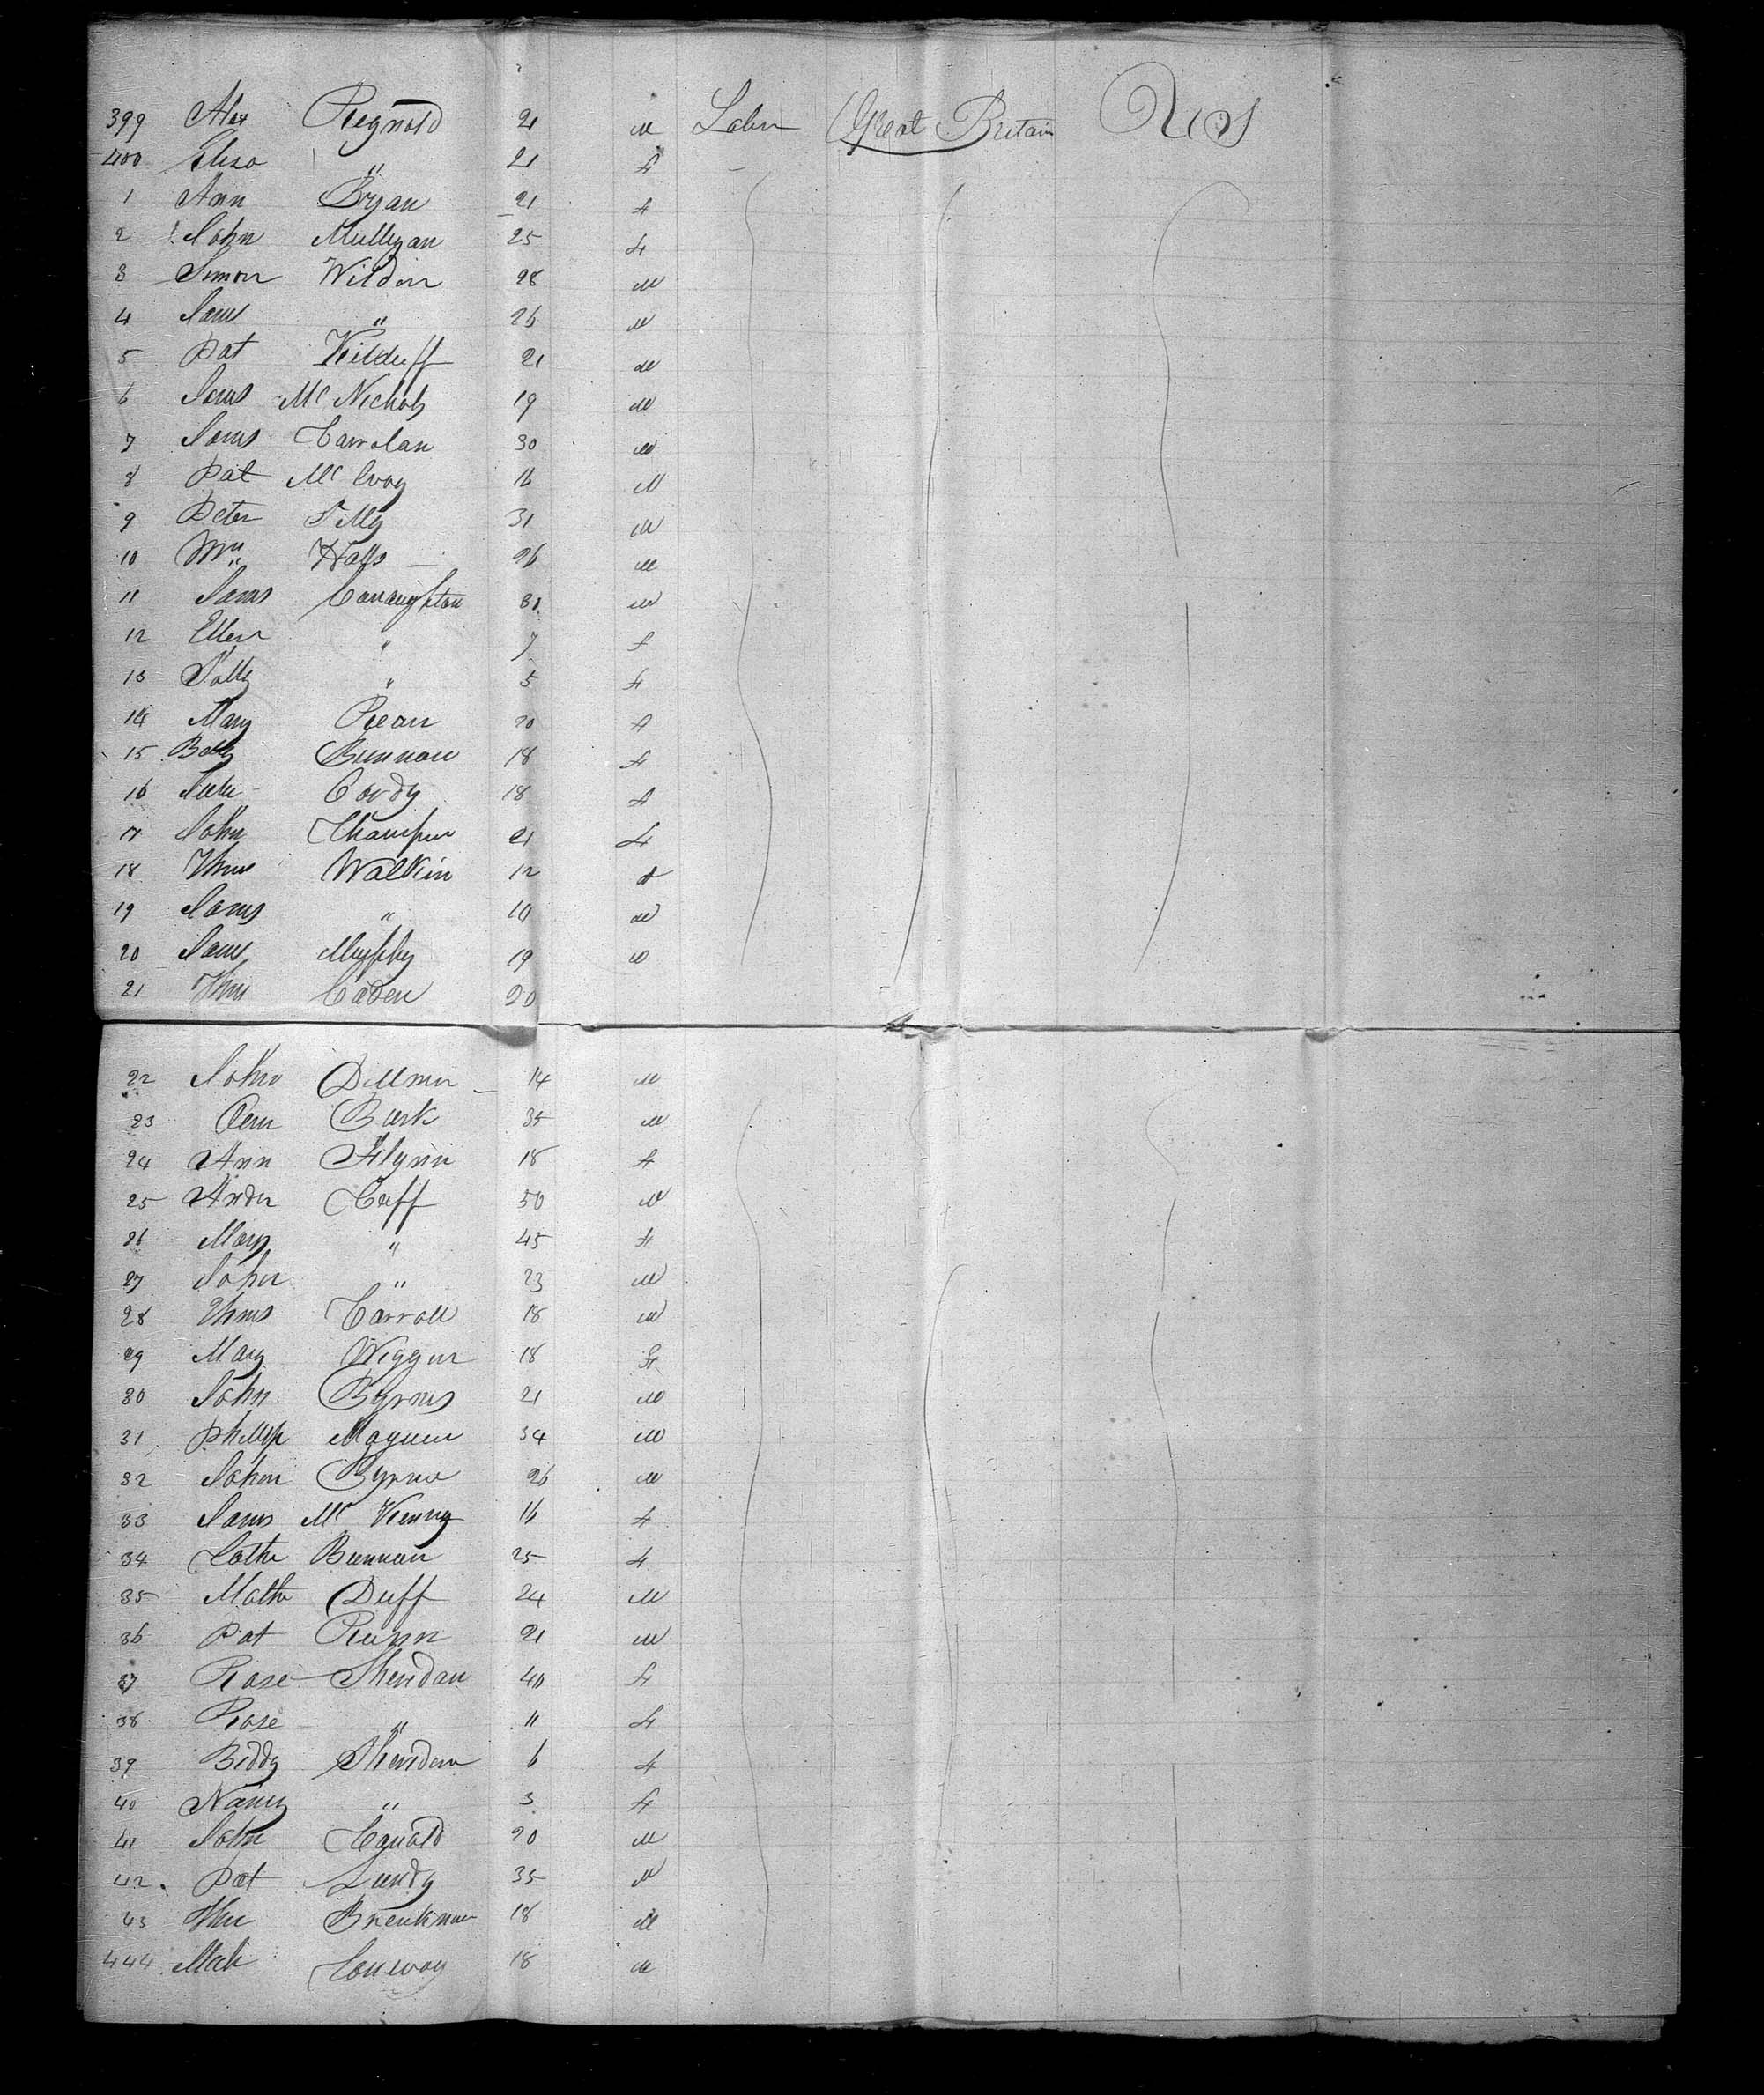 399 Alex Regnold 21 M Labor Great Britain U S
400 Eliza " 21 f
1 Ann Bryan 21 f
2 John Mulligan 25 f
3 Simon Wildin 28 M
4 James " 26 M
5 Pat Kilduff 21 M
6 James Mc Nichols 19 M
7 James Carrolan 30 M
8 Pat Mc Evoy 16 M
9 Peter 31 M
10 Wm Halls 26 M
11 James Conaughton 31 M
12 Ellen " 7 f
13 " 5 f
14 Mary Rean 20 f
15 Brennan 18 f
16 Cordy 18 f
17 John 21 f
18 Thms Walkin 12 f
19 James " 10 M
20 James Murphy 19 M
21 Thms Caden 20
22 John 14 M
23 Burk 35 M
24 Ann Flynn 18 f
25 Andw Cuff 50 M
26 Mary " 45 f
27 John " 23 M
28 Thms Carroll 18 M
29 Mary Wiggin 18 f
30 John Byrnes 21 M
31 Phillip 34 M
32 John Byrne 26 M
33 James Mc Kenny 16 f
34 Cathe Brennan 25 f
35 Mathw Duff 24 M
36 Pat 21 M
37 Rose Sheridan 40 f
38 Rose " 11 f
39 Biddy Sheridan 6 f
40 Nancy " 3 f
41 John 20 M
42 Pat Lundy 35 M
43 18 M
444 Conway 18 M